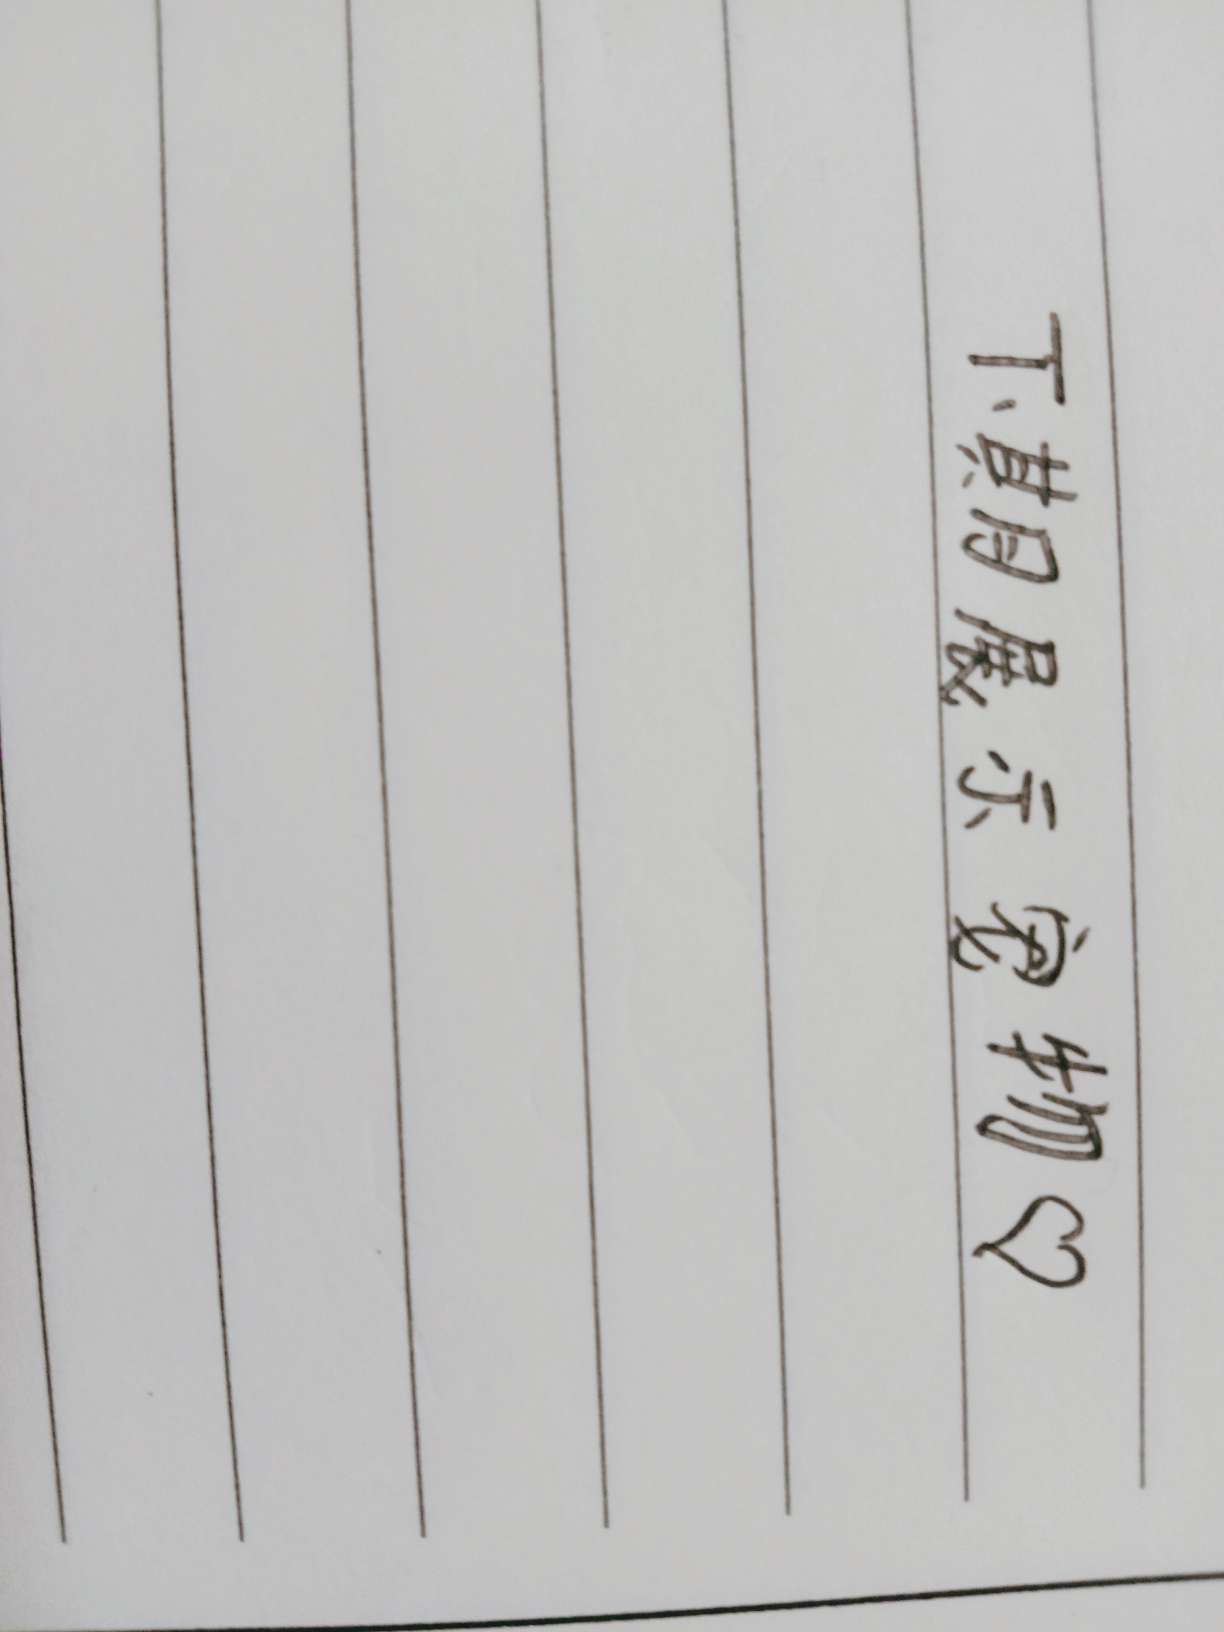 下期展示宠物♡